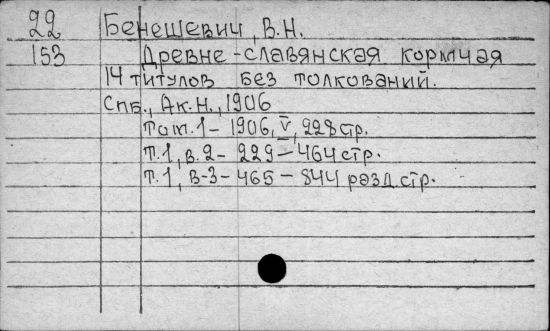 22 Бенешевич, В.Н.
153 Древне-славянская кормчая
14 титулов без толкований.
Спб., Ак.Н., 1906
Том.1 – 1906, V, 228 стр.
Т.1, в.2 – 229 – 464 стр.
Т.1, в-3 – 465 – 844 разд.стр.